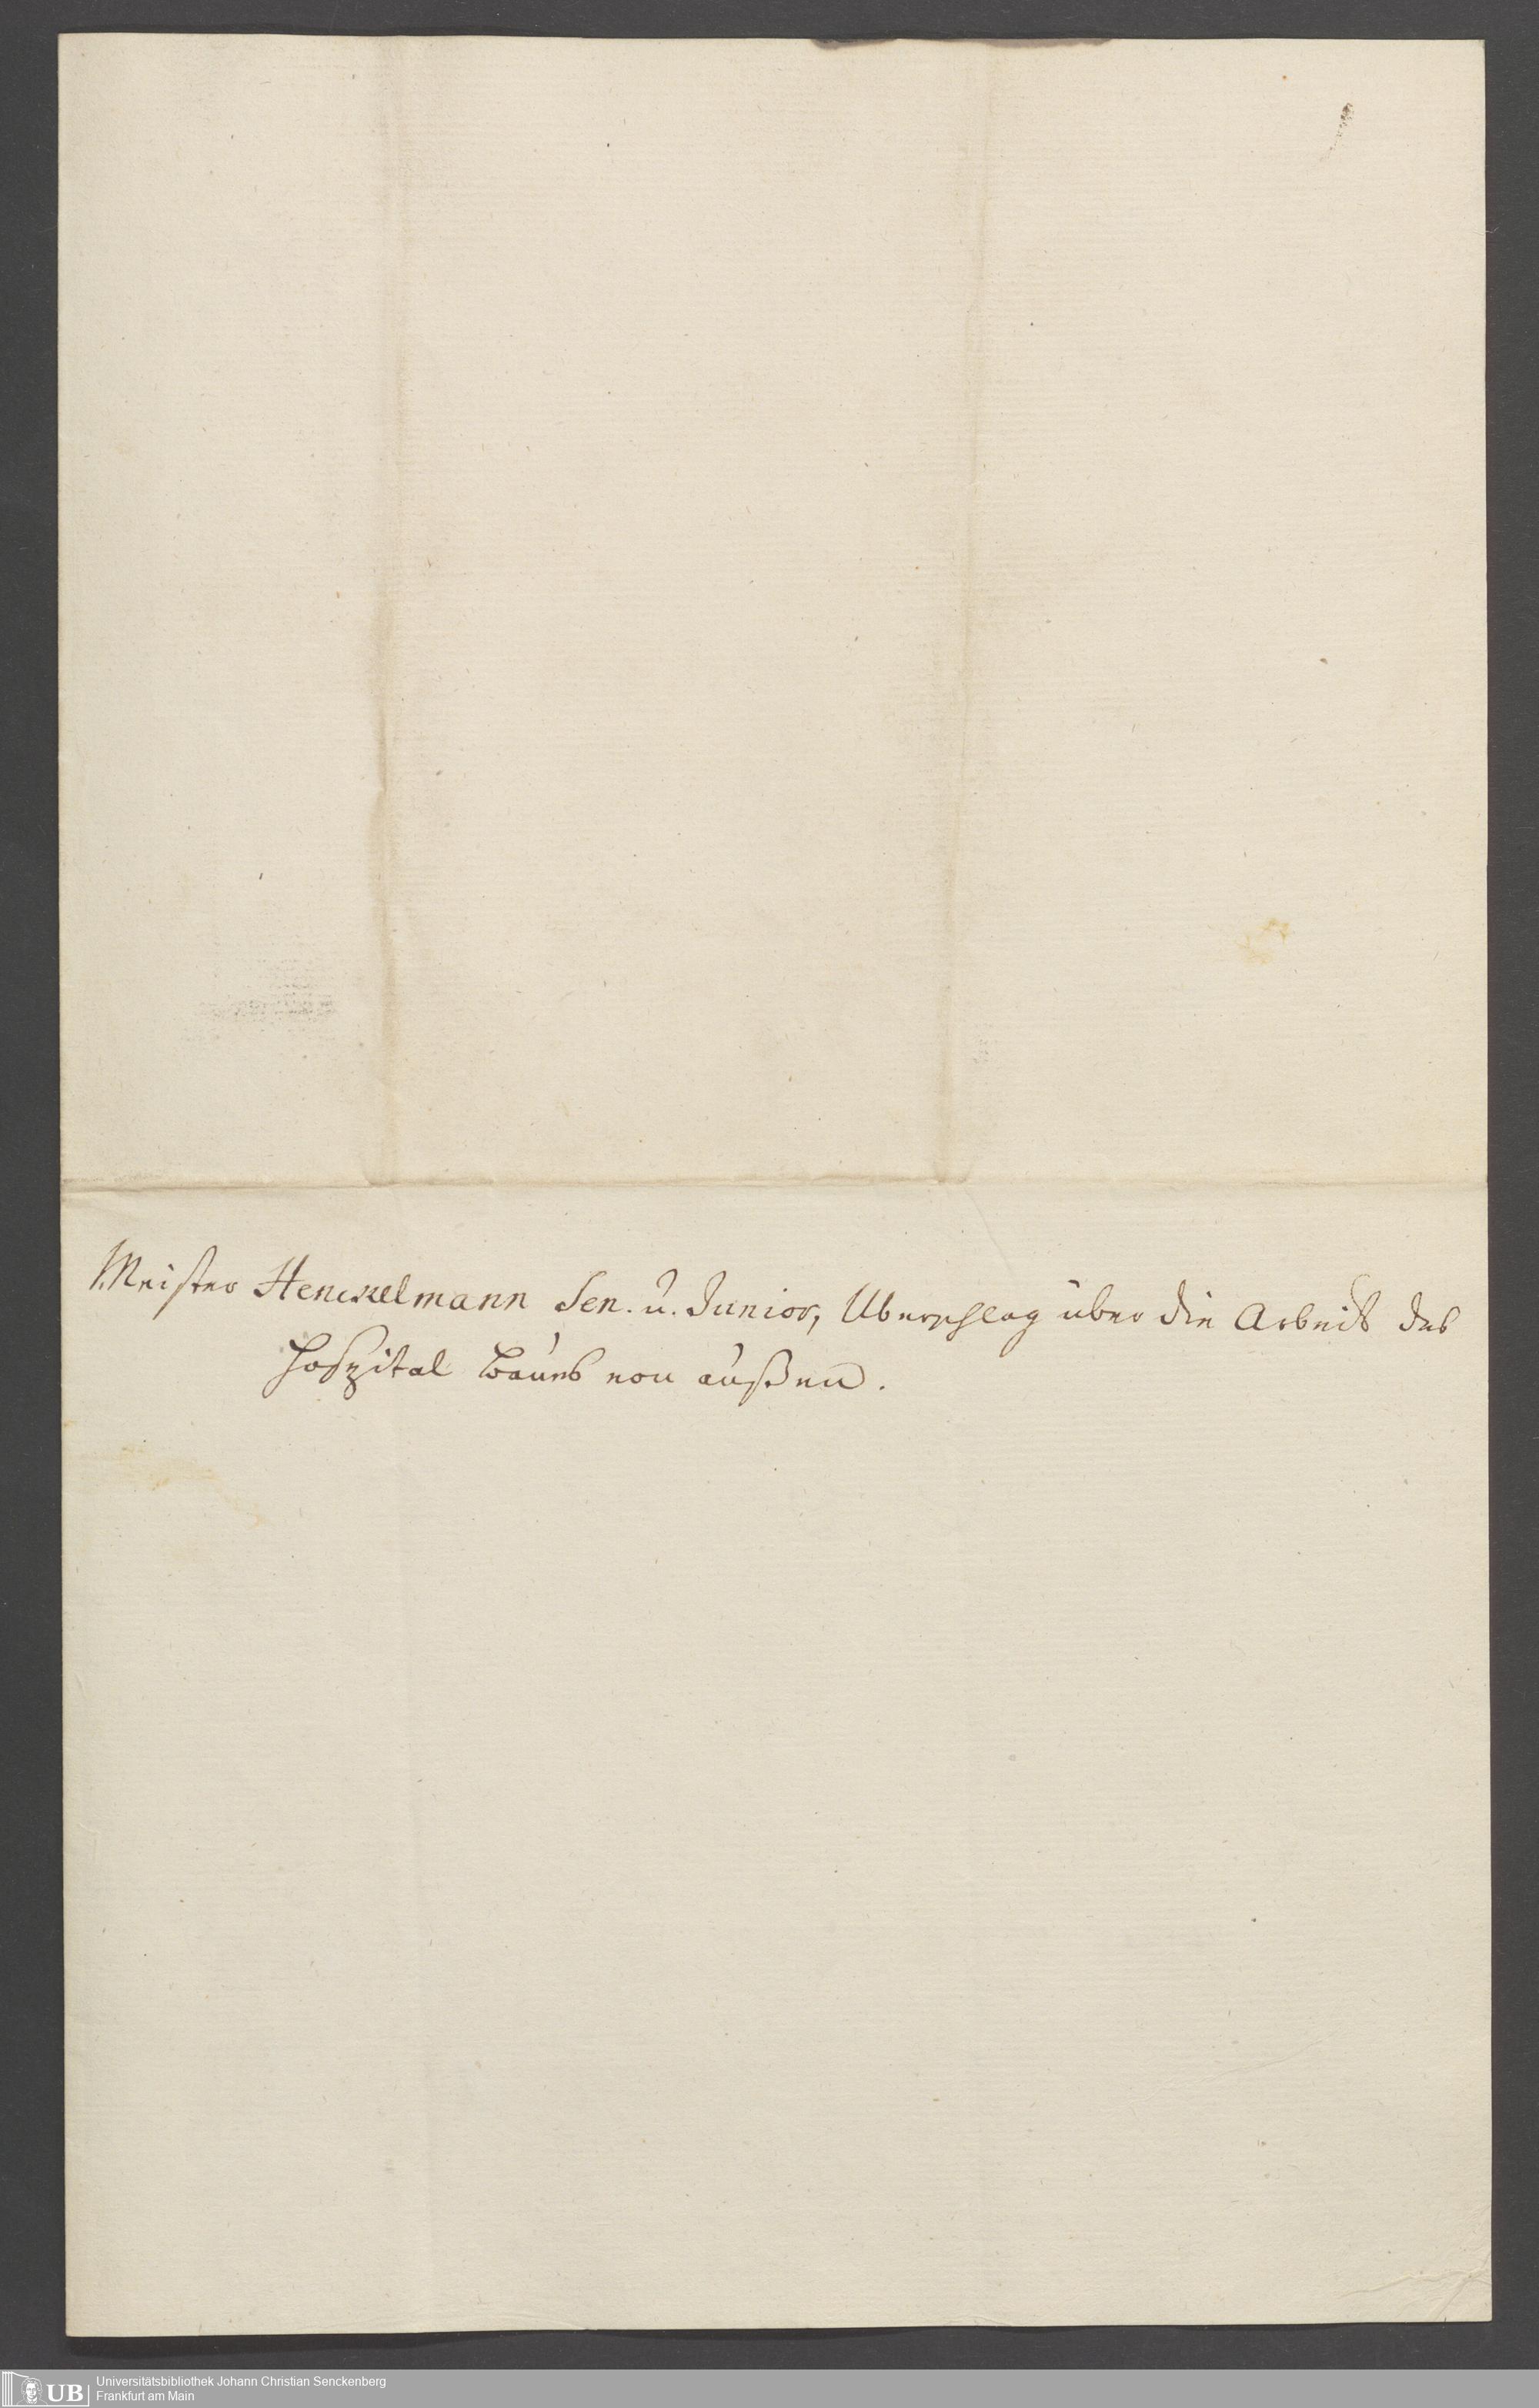 Meister Henckelmann Sen. u. Junior, Uberschlag über die Arbeit des
Hospital Baues von außen.
UB
Universitätsbibliothek Johann Christian Senckenberg
Frankfurt am Main